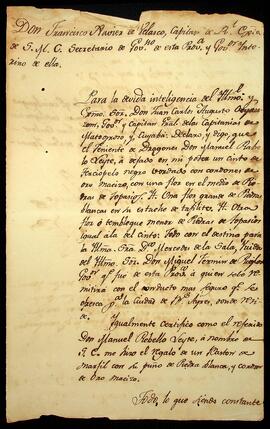 Don Francisco Xavier de Velasco, Capitan de
de S. M. C. Secretario de Gov.no de esta Prov.a y Gov.or Inte-
rino de ella.
Para la devida inteligencia del Yllmo. y
Exmo. Sor. Don Juan Carlos Augusto
Gov.or y Capitan Gral. de las Capitanias de
Matogroso, y Cuyabá: Declaro, y digo, que
el Teniente de Dragones Don Manuel Rebo-
llo Leyte, á dejado en mi poder un cinto de
terciopelo negro bordado con cordones de
oro macizo, con una flor en el medio de Pie-
dras de topacio. Yt. Una flor grande de Piedras
blancas en su estuche de tafilete. Yt. Otra
flor ó tembleque menor de Piedras de topacio
igual á la del cinto: todo con el destino para
la Yllma. Sra. D.a Mercedes de la Sala, Viuda
del Yllmo. Sor. Don Miguel Fermin de
Gov.or que fué de esta Prov.a á quien solo re-
mitirá con el conducto mas seguro que se
ofresca p.a la Ciudad de B.s Ayres, donde re-
side.
Ygualmente certifico como el referido
Don Manuel Rebollo Leyte, á nombre de
S. E. me hizo el regalo de un Baston de
marfil con su puño de Piedra blanca, y cordon
de oro macizo.
Todo lo que siendo constante